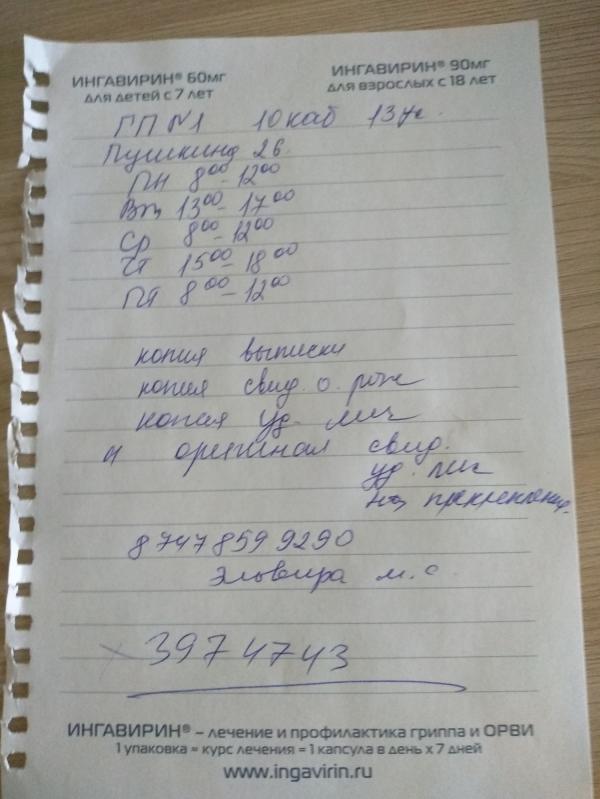 ИНГАВИРИН® 60мг
для детей с 7 лет
ИНГАВИРИН® 90мг
для взрослых с 18 лет
ГП N1 10 каб 13 уч.
Пушкина 26.
ПН 8⁰⁰-12⁰⁰
Вт 13⁰⁰-17⁰⁰
Ср 8⁰⁰-12⁰⁰
Чт 15⁰⁰-18⁰⁰
Пт 8⁰⁰-12⁰⁰
копия выписки
копия свид. о. рож
копия уд. лич
и оригинал свид.
уд. лич
на прикрепление.
8 747 859 9290
Эльвира м.с.
397 47 43
ИНГАВИРИН® – лечение и профилактика гриппа и ОРВИ
1 упаковка = курс лечения = 1 капсула в день х 7 дней
www.ingavirin.ru